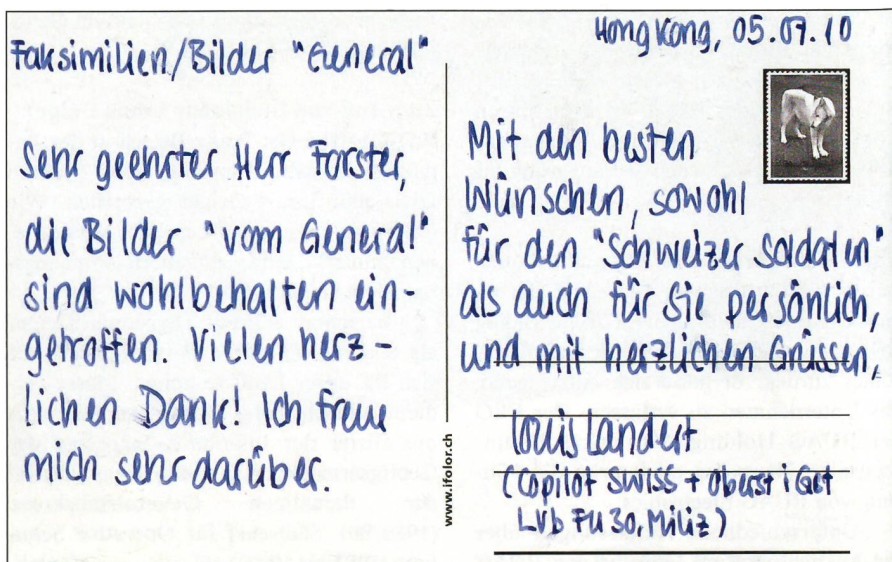 Faksimilien/Bilder "General"
Sehr geehrter Herr Forster,
die Bilder "vom General"
sind wohlbehalten ein-
getroffen. Vielen herz-
lichen Dank! Ich freue
mich sehr darüber
www.ifolor.ch
Hong Kong, 05.07.10
Mit den besten
Wünschen, sowohl
für den "Schweizer Soldaten"
als auch für Sie persönlich,
und mit herzlichen Grüssen,
Louis Landert
(Copilot SWISS + Oberst i Gst
LVb Fu 30, Miliz)